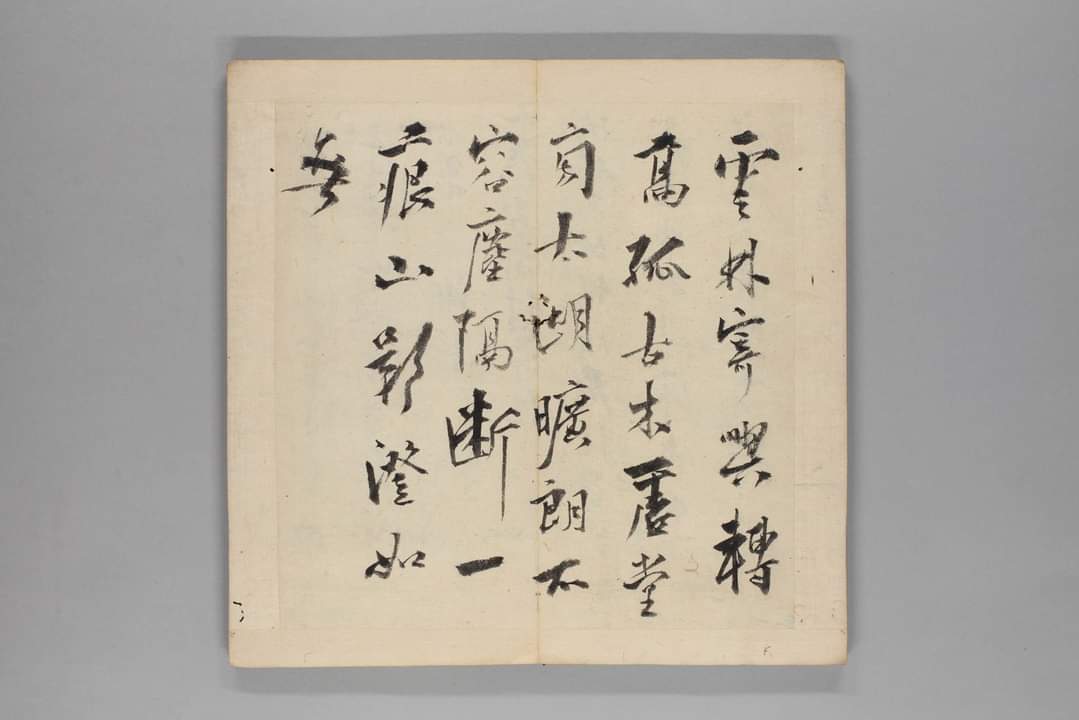 雲林寄興轉
高孤古木虛堂
面太湖曠朗不
容塵隔斷一
痕山影澄如
無